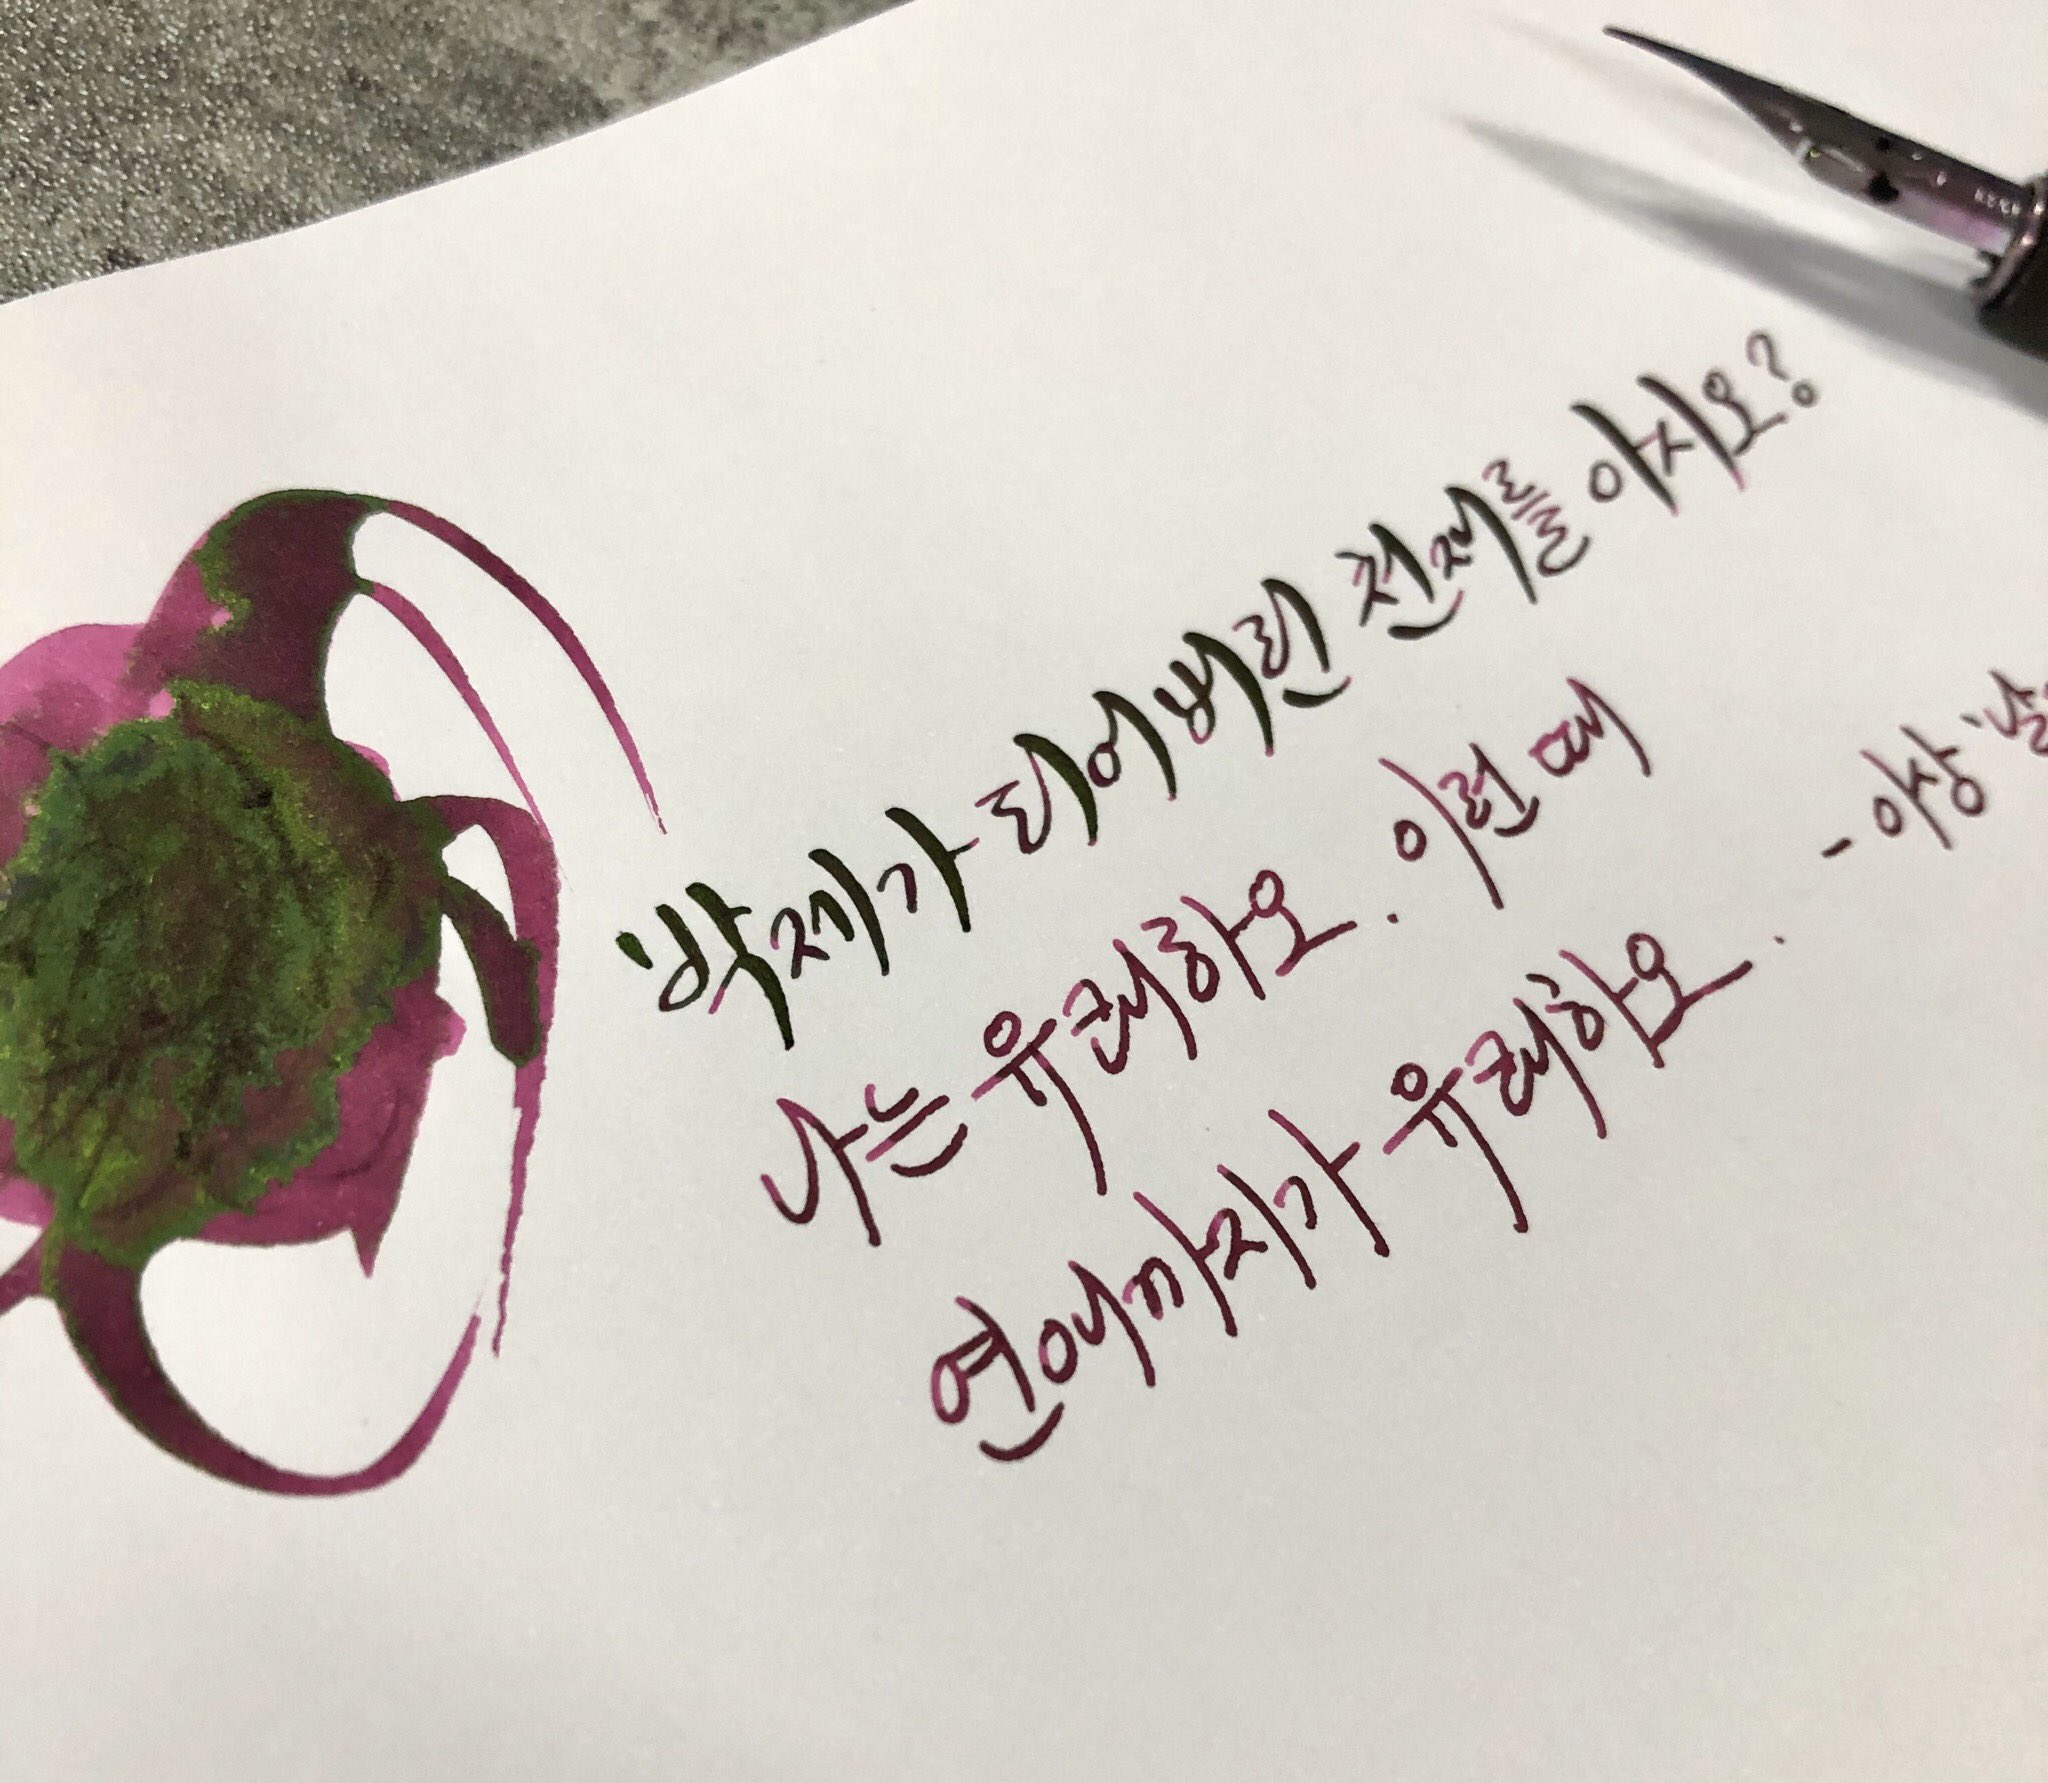 '박제가 되어버린 천재를 아시오?
나는 유쾌하오. 이런 때
연애까지가 유쾌하오.
- 이상 '날